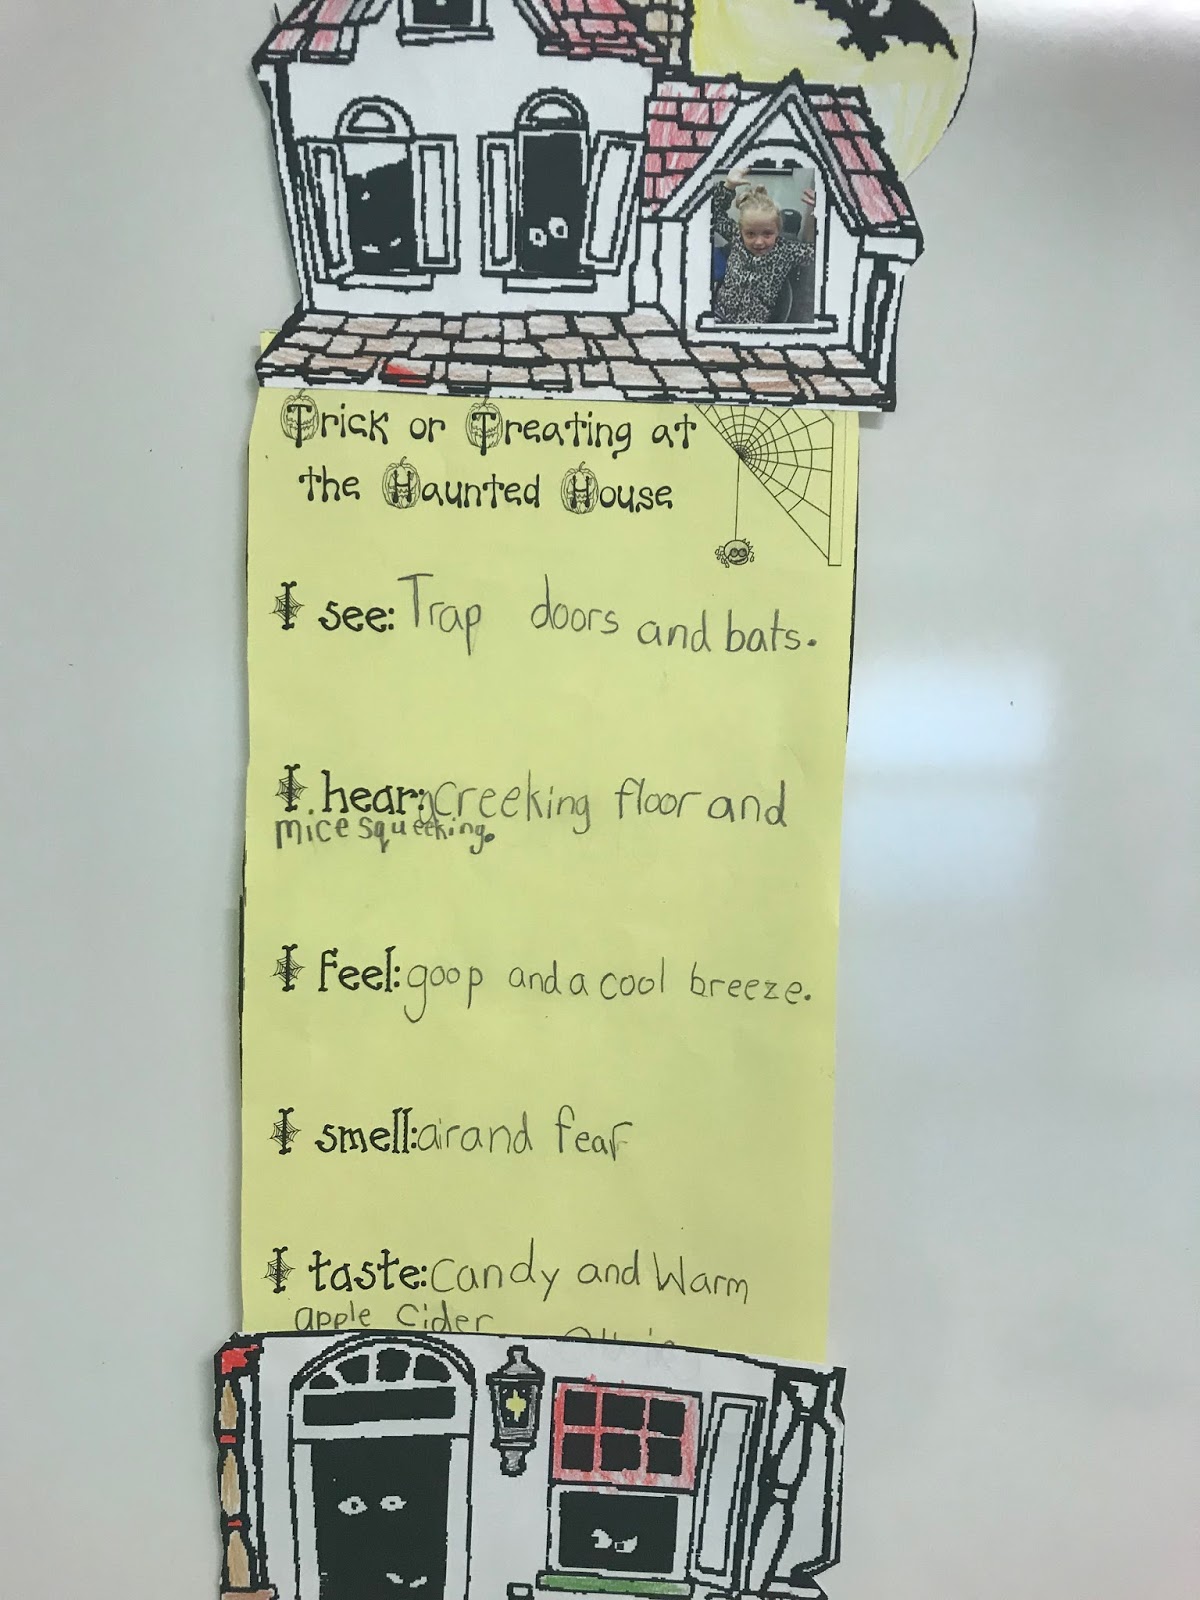 Trick or Treating at
the Haunted House
I see: Trap doors and bats.
I hear: creeking floor and
mice squeeking.
I feel: goop and a cool breeze.
I smell: air and fear
I taste: candy and Warm
apple Cider